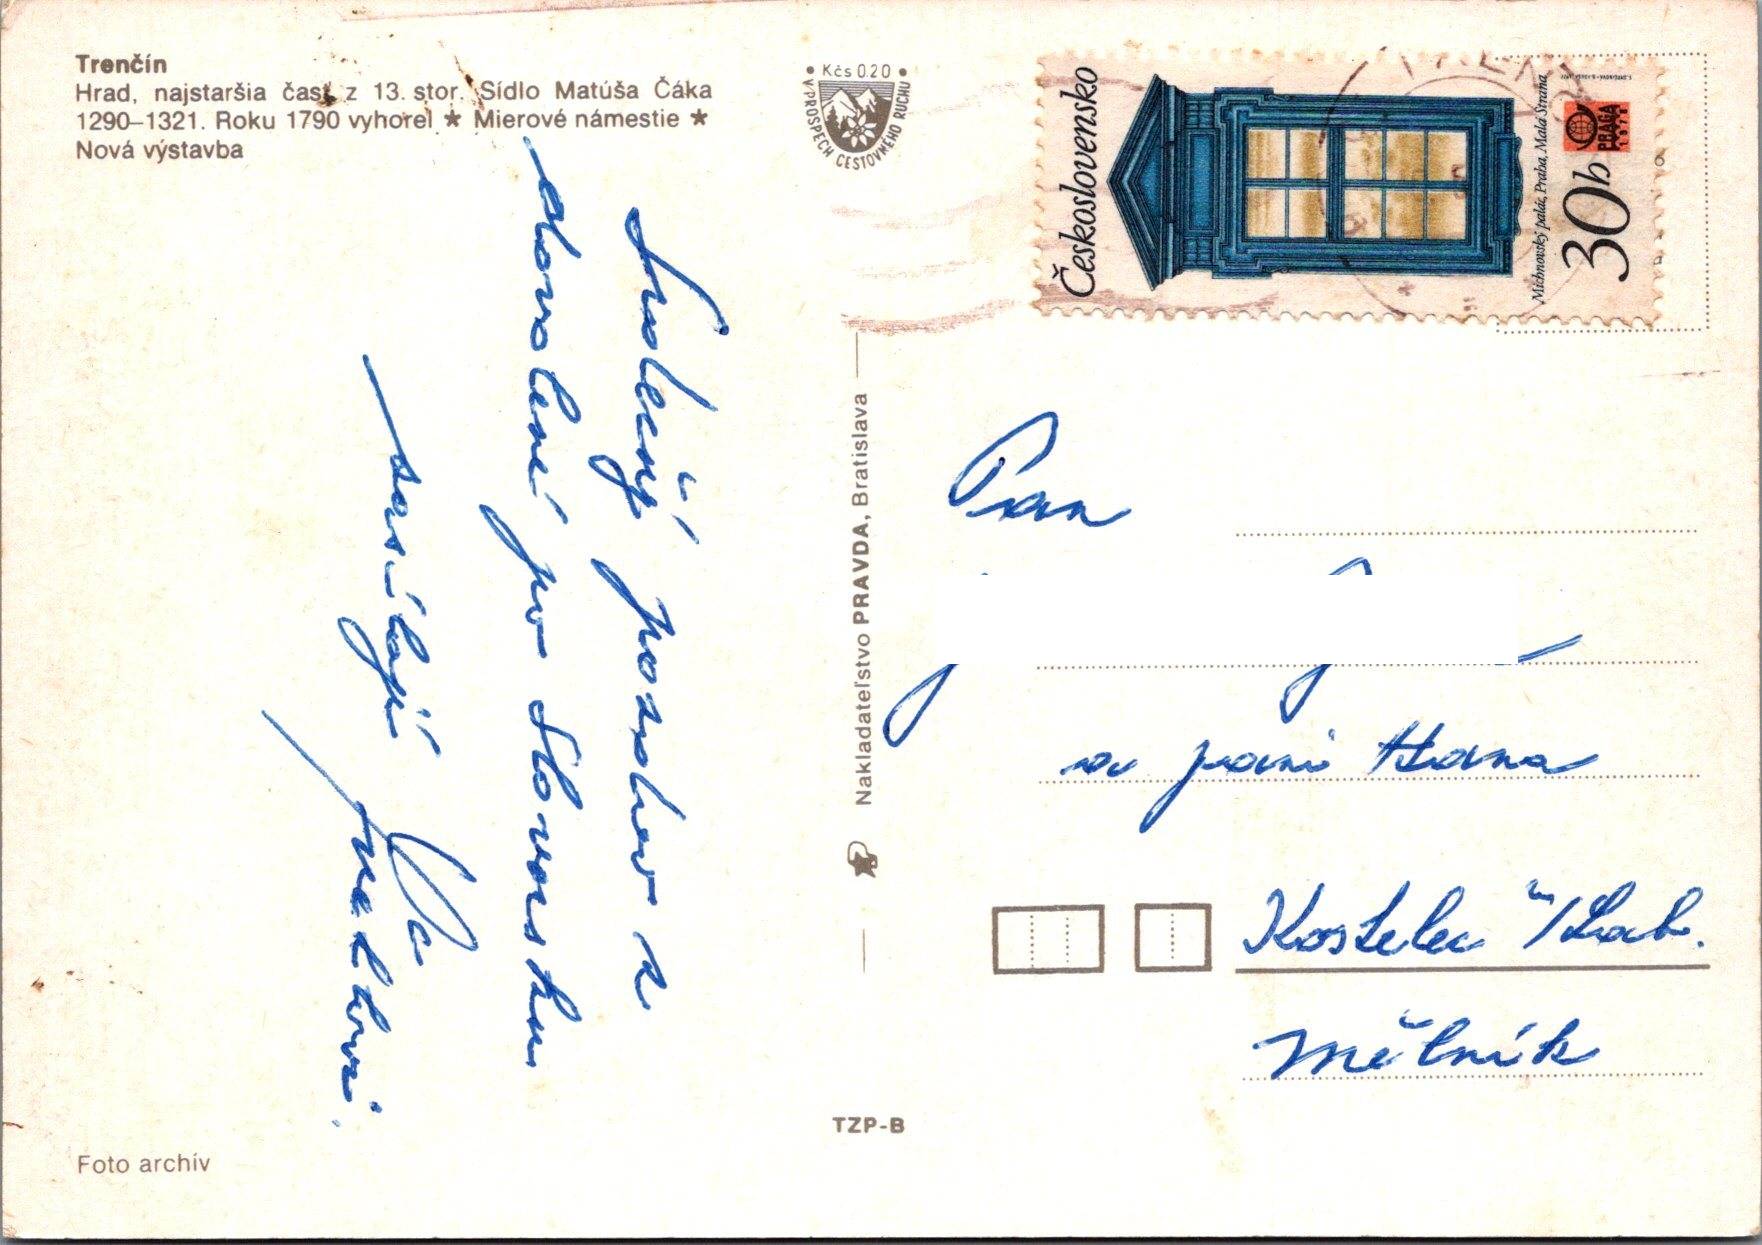 Trenčín
Hrad, najstaršia časť z 13. stor. Sídlo Matúša Čáka
1290–1321. Roku 1790 vyhorel ★ Mierové námestie ★
Nová výstavba
Kčs 0.20
V PROSPECH CESTOVNÉHO RUCHU
Československo
Michnovský palác, Praha, Malá Strana
30h
PRAGA
1978
Srdečný pozdrav z
dovolené po Slovensku
zasílají
Nakladateľstvo PRAVDA, Bratislava
Pan
paní Hana
Kostelec n/Lab.
Mělník
TZP-B
Foto archív